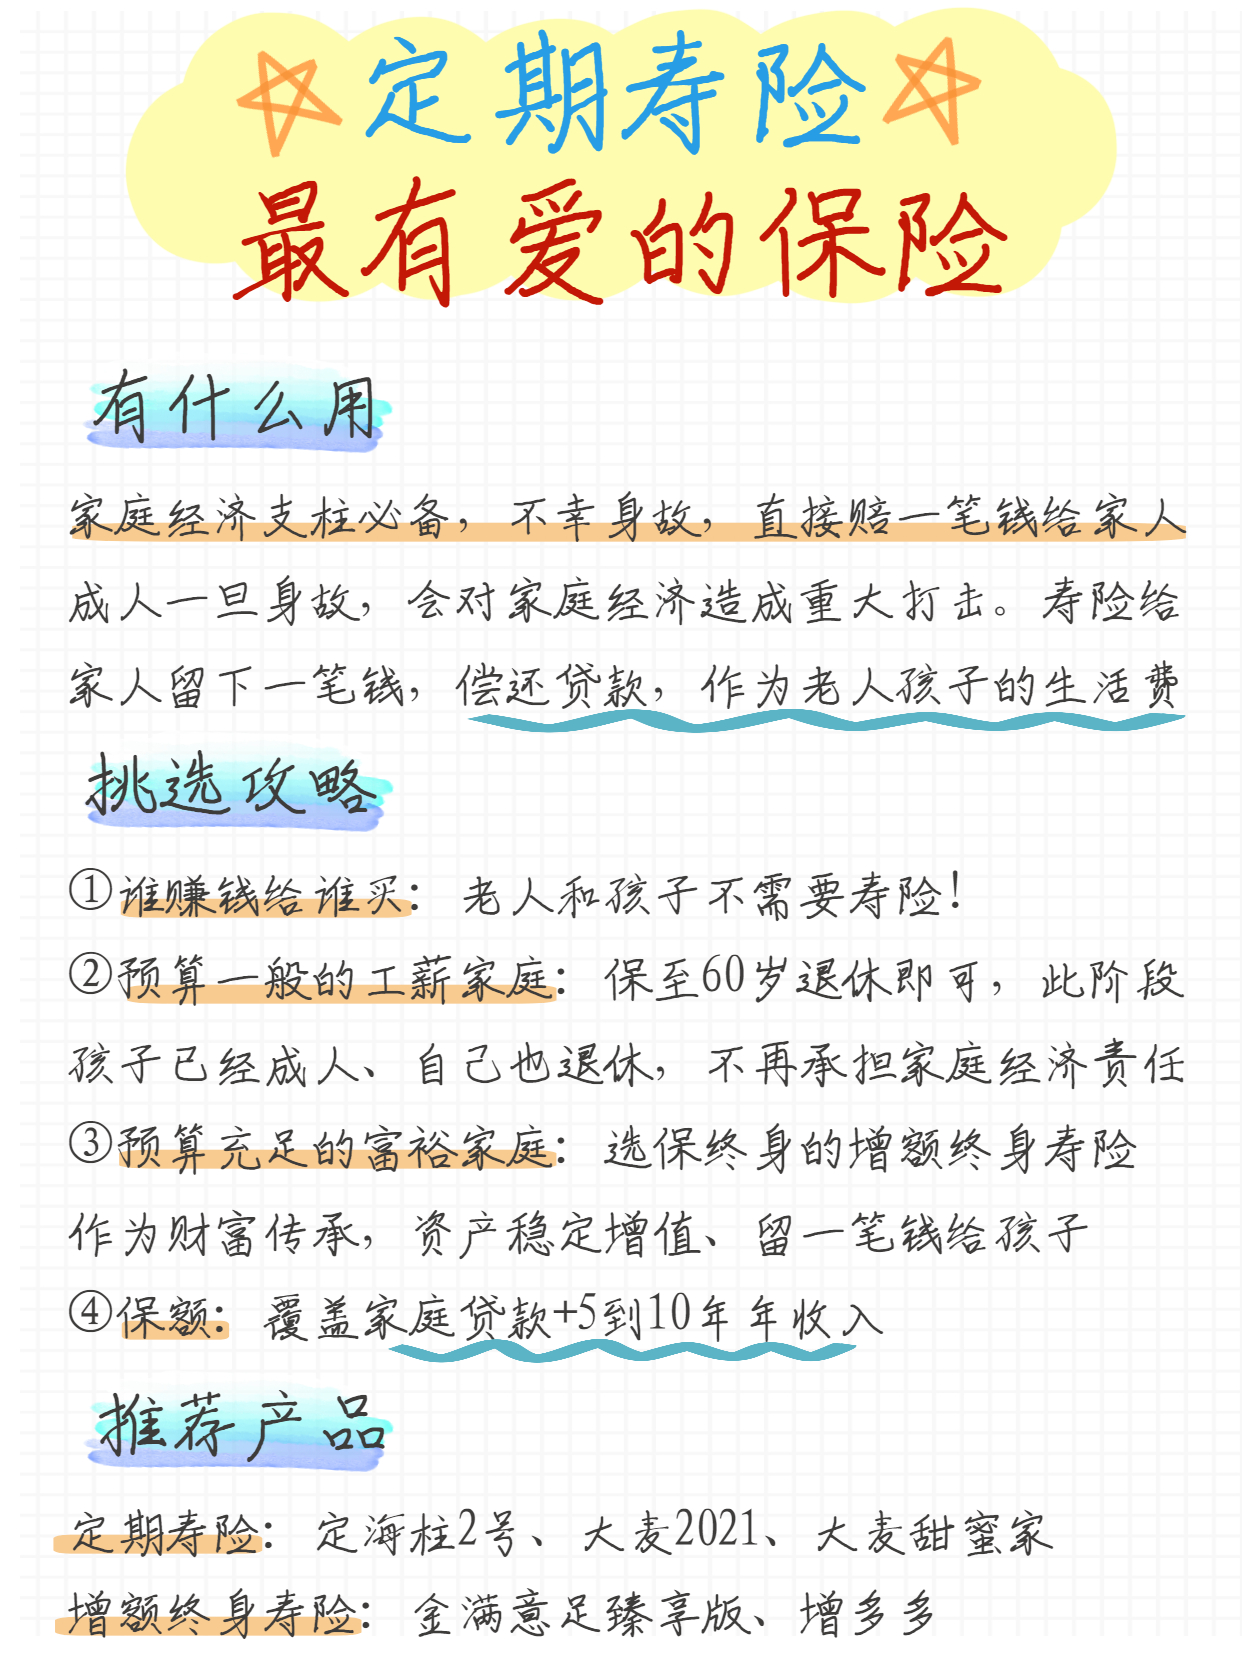 定期寿险
最有爱的保险
有什么用
家庭经济支柱必备，不幸身故，直接赔一笔钱给家人
成人一旦身故，会对家庭经济造成重大打击。寿险给
家人留下一笔钱，偿还贷款，作为老人孩子的生活费
挑选攻略
①谁赚钱给谁买：老人和孩子不需要寿险！
②预算一般的工薪家庭：保至60岁退休即可，此阶段
孩子已经成人、自己也退休，不再承担家庭经济责任
③预算充足的富裕家庭：选保终身的增额终身寿险
作为财富传承，资产稳定增值、留一笔钱给孩子
④保额：覆盖家庭贷款+5到10年年收入
推荐产品
定期寿险：定海柱2号、大麦2021、大麦甜蜜家
增额终身寿险：金满意足臻享版、增多多